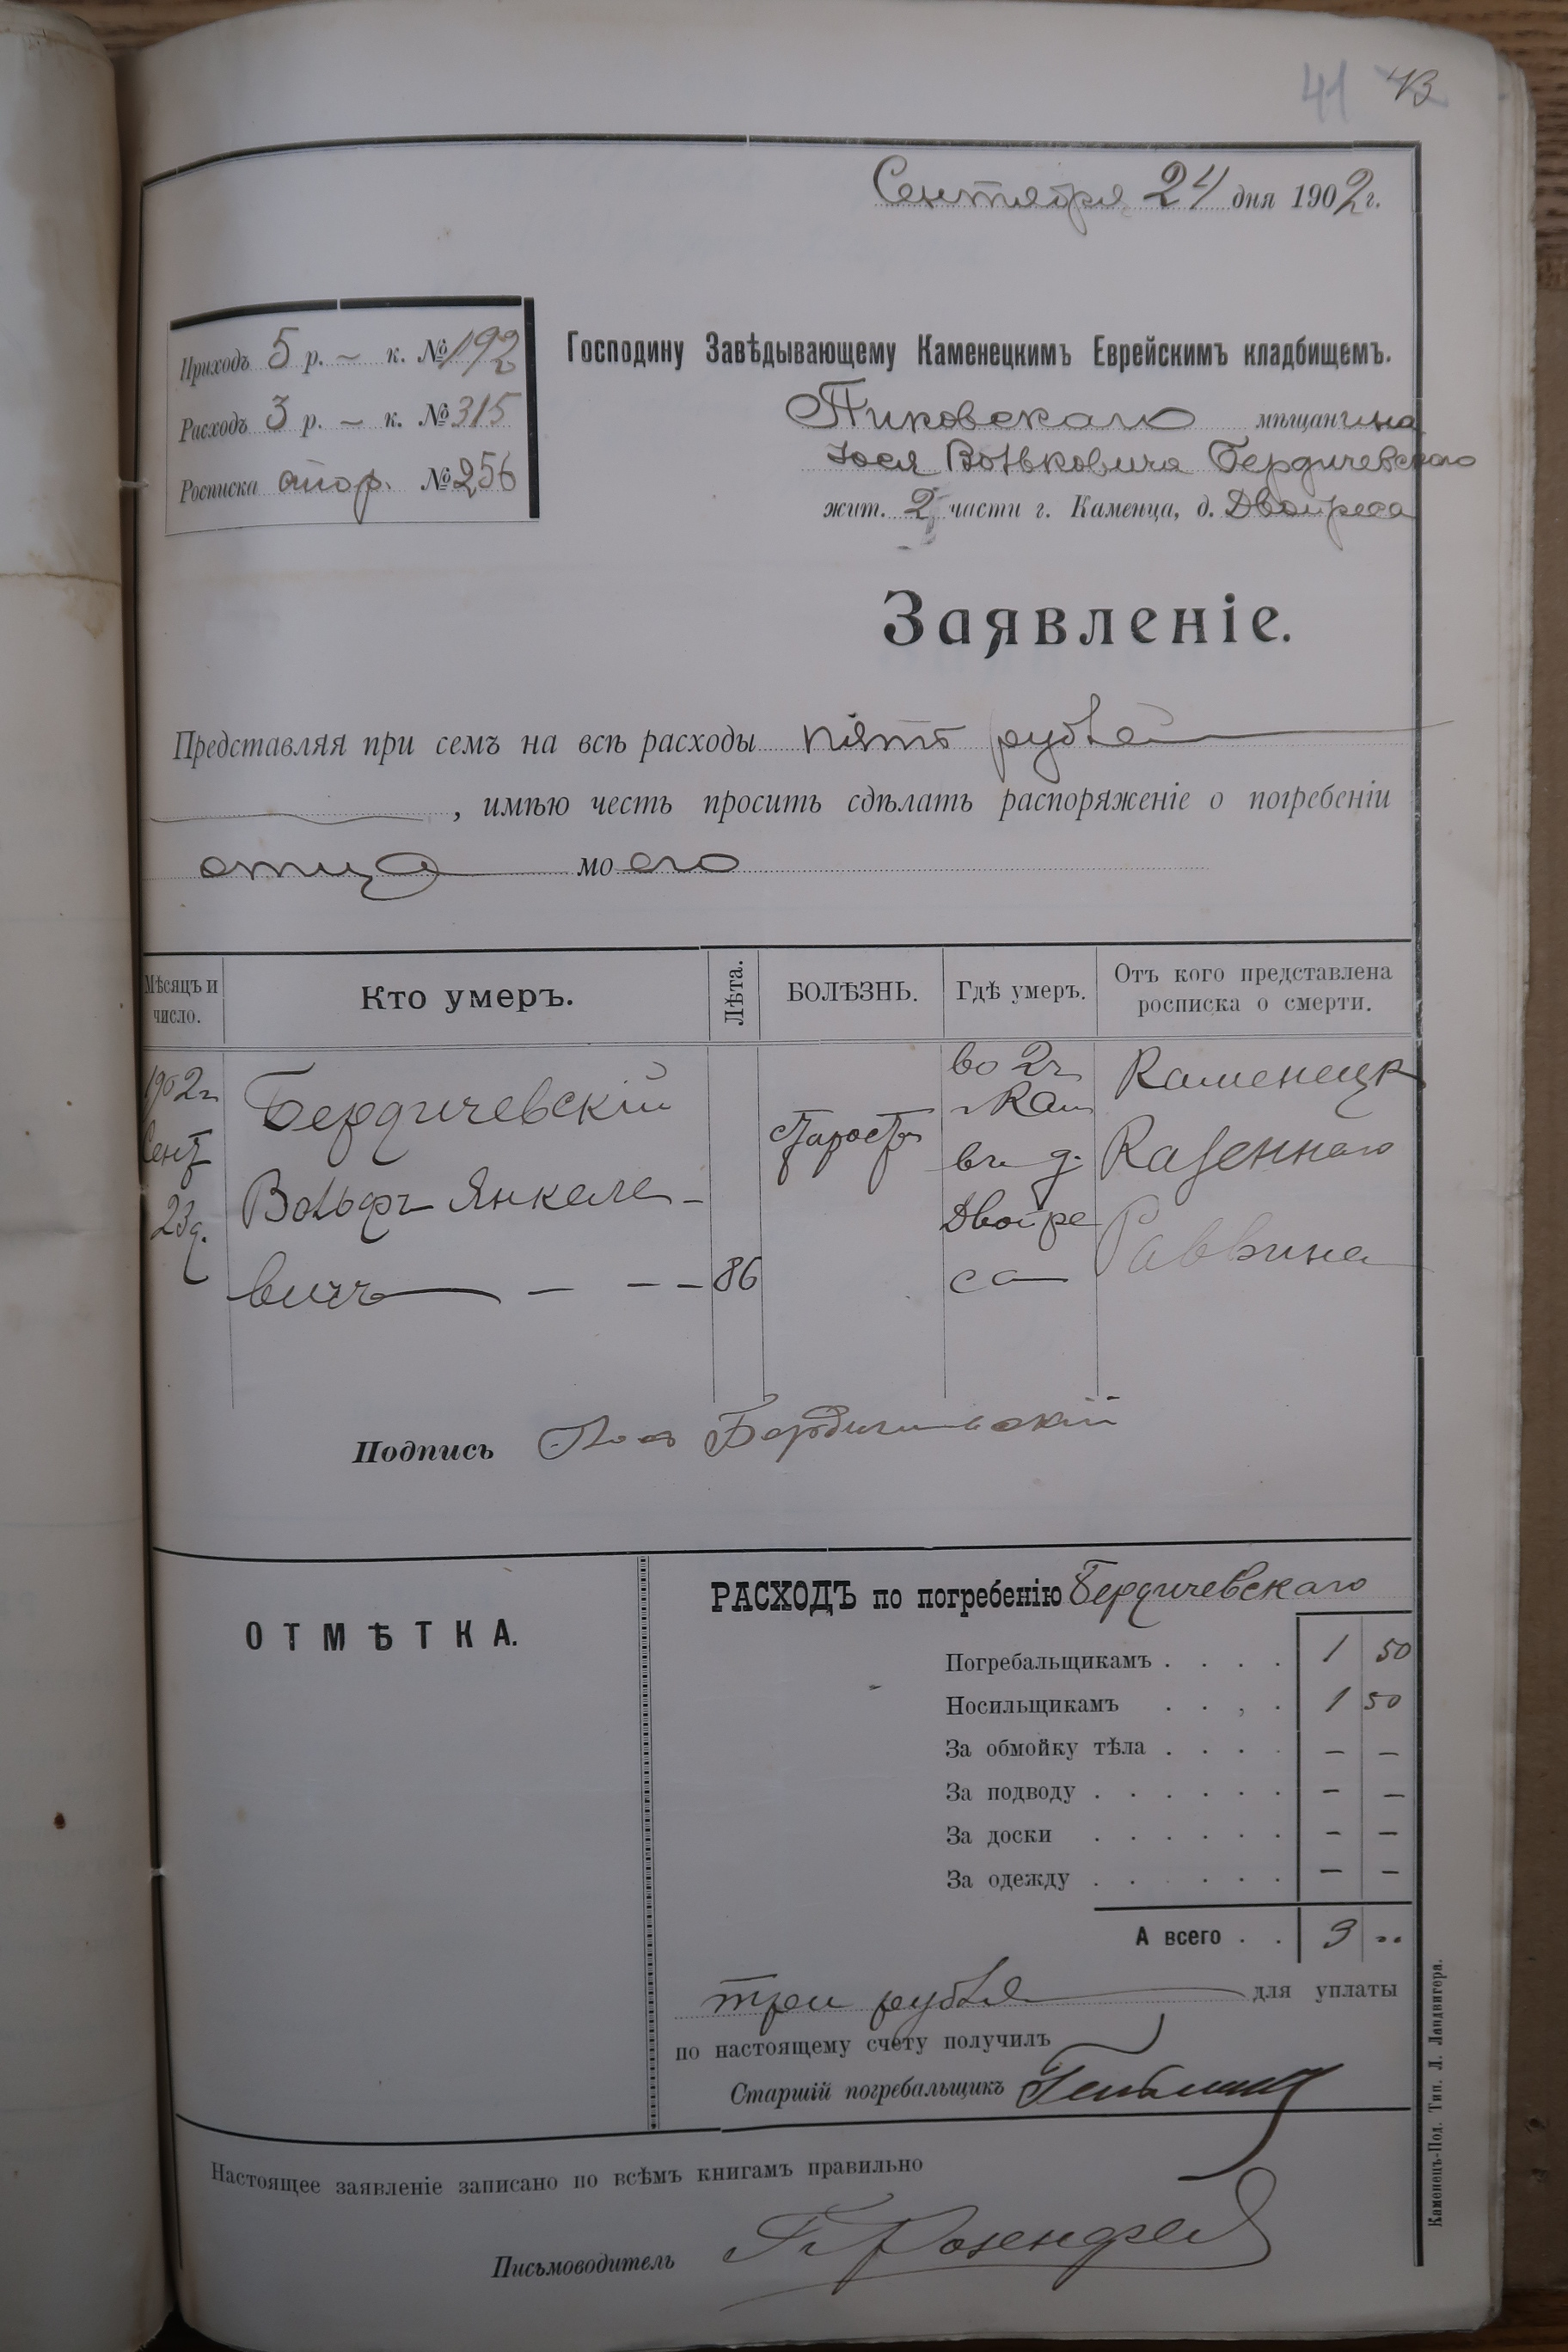 41 43
Сентября 24 дня 1902 г.
Приходъ 5 р. – к. № 192
Расходъ 3 р. – к. № 315
Росписка № 256
Господину Завѣдывающему Каменецкимъ Еврейскимъ кладбищемъ.
Пиковскаго мѣщанина
Іося Вольковича Бердичевскаго
жит. 2 части г. Каменца, д. Двойреса
Заявленіе.
Представляя при семъ на всѣ расходы пять рублей
, имѣю честь просить сдѣлать распоряженіе о погребеніи
отца моего
Мѣсяцъ и число.
Кто умеръ.
Лѣта.
БОЛѢЗНЬ.
Гдѣ умеръ.
Отъ кого представлена росписка о смерти.
1902 г. Сент 23 д.
Бердичевскій
Вольфъ Янкеле-
вичъ
86
старость
во 2 ч
г Кам
въ д.
Двойре
са
Каменецк
Казеннаго
Раввина
Подпись Бердичевскій
ОТМѢТКА.
РАСХОДЪ по погребенію Бердичевскаго
Погребальщикамъ . . . . 1 50
Носильщикамъ . . , . 1 50
За обмойку тѣла . . . . – –
За подводу . . . . . . – –
За доски . . . . . . – –
За одежду . . . . . . – –
А всего . . 3 ..
три рубля для уплаты
по настоящему счету получилъ
Старшій погребальщикъ
Настоящее заявленіе записано по всѣмъ книгамъ правильно
Письмоводитель Розенфел
Каменецъ-Под. Тип. Л. Ландвигера.